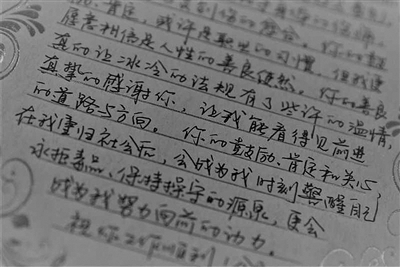 或许是职业的习惯，但我更
愿意相信是人性的善良使然。你的善良
真的让冰冷的法规有了些许的温情，
真挚的感谢你，让我能看得见前进
的道路与方向。你的鼓励、肯定和关心
在我重归社会后，会成为我时刻警醒自己
永拒毒品、保持操守的源泉，更会
成为我努力向前的动力。
祝你工作顺利